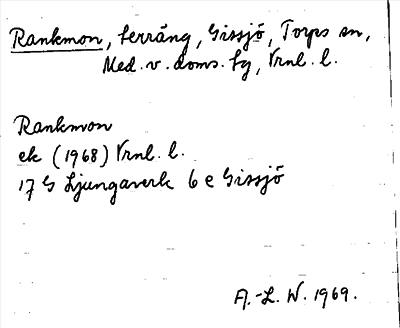 Rankmon, terräng, Gissjö, Torps sn,
Med. v. doms. tg, Vrnl. l.
Rankmon
ek (1968) Vrnl. l.
17 G Ljungaverk 6 e Gissjö
A.-L. W. 1969.